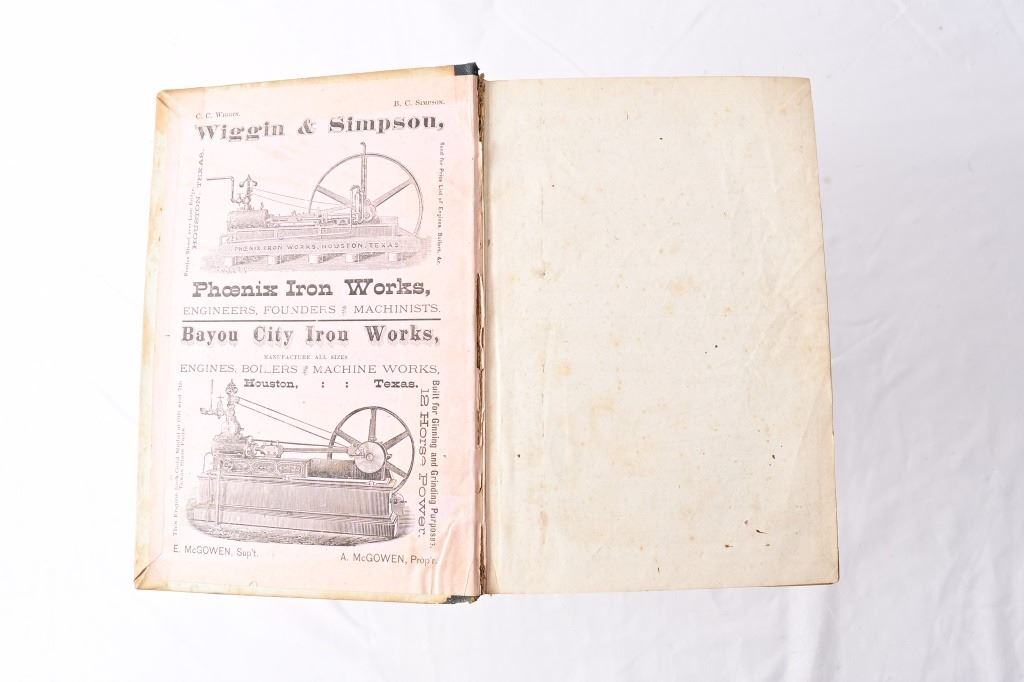 C. C. Wiggin.
B. C. Simpson.
Wiggin & Simpson,
HOUSTON, TEXAS.
Send for Price List of Engines, Boilers, &c.
PHŒNIX IRON WORKS, HOUSTON, TEXAS.
Phœnix Iron Works,
ENGINEERS, FOUNDERS AND MACHINISTS.
Bayou City Iron Works,
MANUFACTURE ALL SIZES
ENGINES, BOILERS AND MACHINE WORKS,
Houston, : : Texas.
This Engine took Gold Medal at 6th and 7th
Texas State Fairs.
Built for Ginning and Grinding Purposes.
12 Horse Power.
E. McGOWEN, Sup't.
A. McGOWEN, Prop'r.